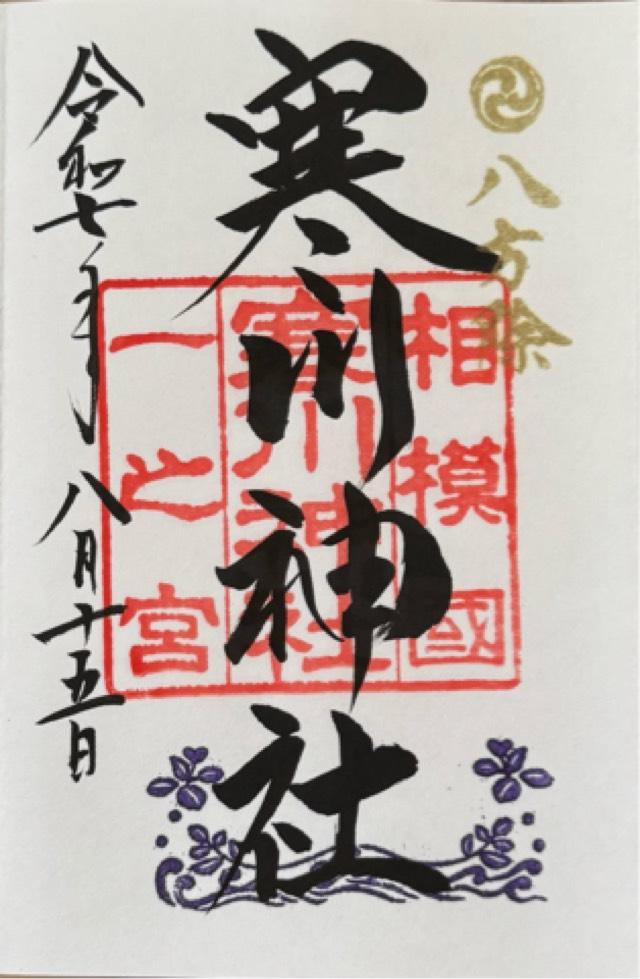 八方除
寒川神社
相模國
寒川神社
一之宮
令和七年八月十五日